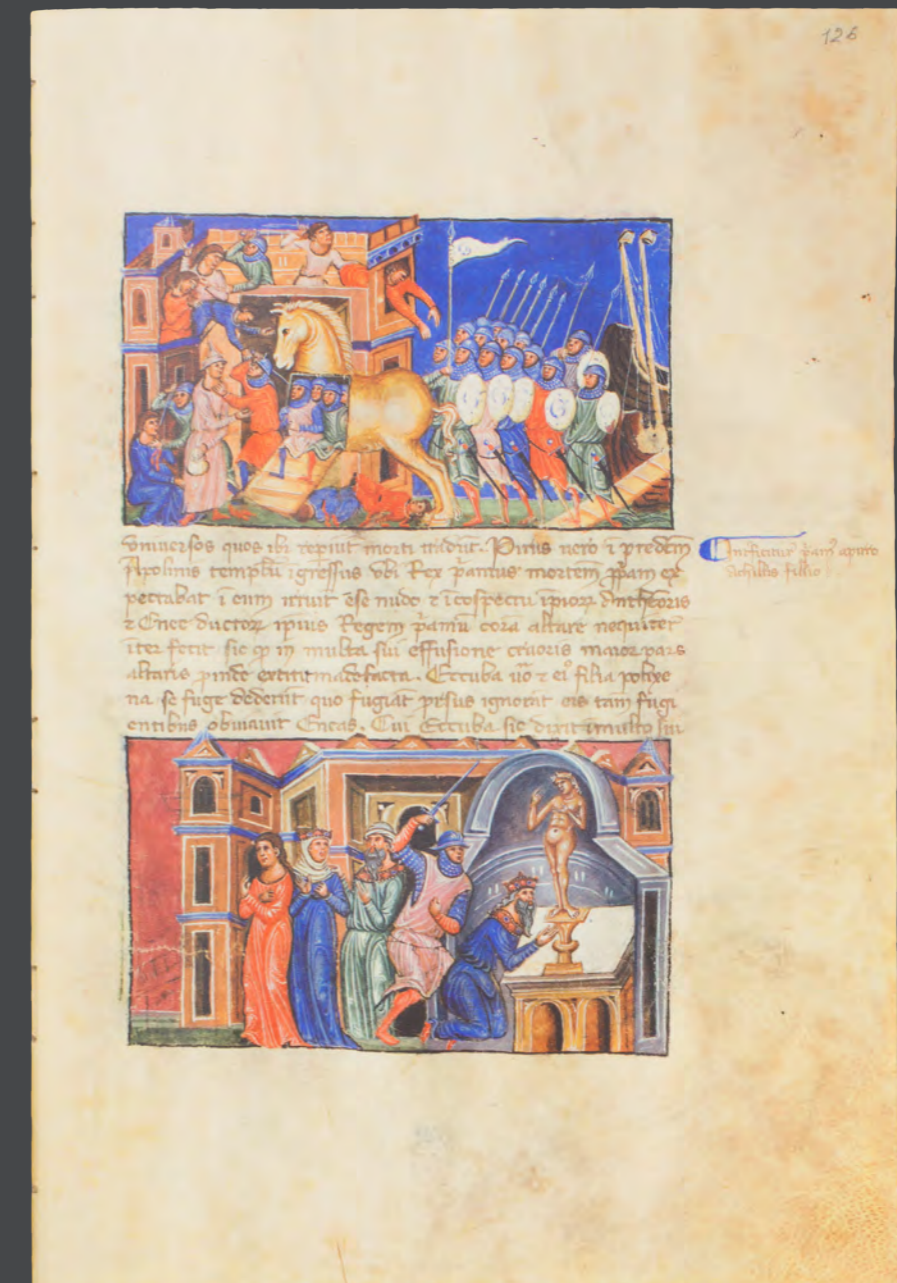 126
vniuersos quos ibi repiūt morti tradūt. Pirus uero ī predcm̄
Apolinis templū īgressus vbi Rex p̄amus mortem p̄pam ex
pectabat ī eum irruit ēse nudo ⁊ īcospectu ip̄ioꝝ Anthenoris
⁊ Enee ductoꝝ ipius Regem p̄amū cora altare nequiter
īter fecit sic ꝙ in multa sui effusione cruoris maior pars
altaris pinde extitit madefacta. Eccuba ūo ⁊ eiꝰ filia polixe
na se fuge dederūt quo fugiāt p̄rsus ignorāt eis tam̄ fugi
entibus obuiauit Eneas. Cui Eccuba sic dixit īmulto
Inteficitur p̄amꝰ apirro
Achillis fillio